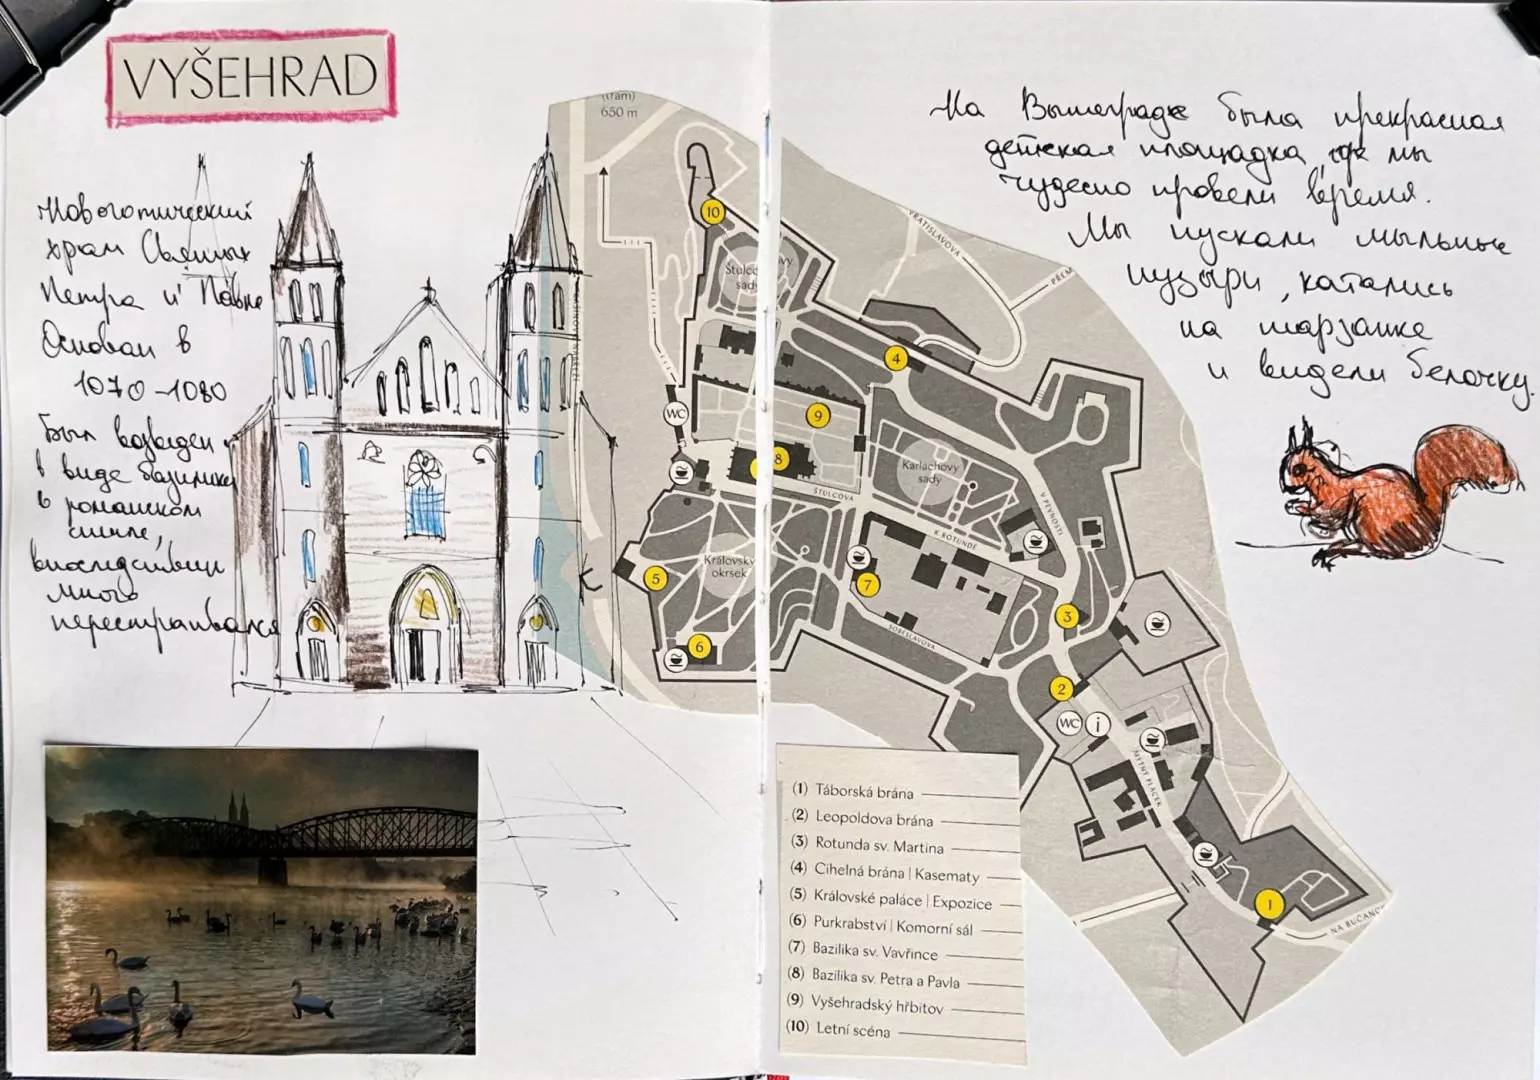 VYŠEHRAD
Новоготический
храм Святых
Петра и Павла
Основан в
1070-1080
Был возведен
в виде базилики
в романском
стиле,
впоследствии
много
перестраивался
(tram)
650 m
На Вышеграде была прекрасная
детская площадка, где мы
чудесно провели время.
Мы пускали мыльные
пузыри, катались
на тарзанке
и видели белочку.
VRATISLAVOVA
PŘEM
10
Štulcovy
sady
4
WC
9
8
Karlachovy
sady
ŠTULCOVA
V PEVNOSTI
K ROTUNDĚ
Královský
okrsek
5
7
3
SOBĚSLAVOVA
6
2
WC
i
MÝTNÝ PLÁCEK
1
NA BUČANC
(1) Táborská brána
(2) Leopoldova brána
(3) Rotunda sv. Martina
(4) Cihelná brána | Kasematy
(5) Královské paláce | Expozice
(6) Purkrabství | Komorní sál
(7) Bazilika sv. Vavřince
(8) Bazilika sv. Petra a Pavla
(9) Vyšehradský hřbitov
(10) Letní scéna